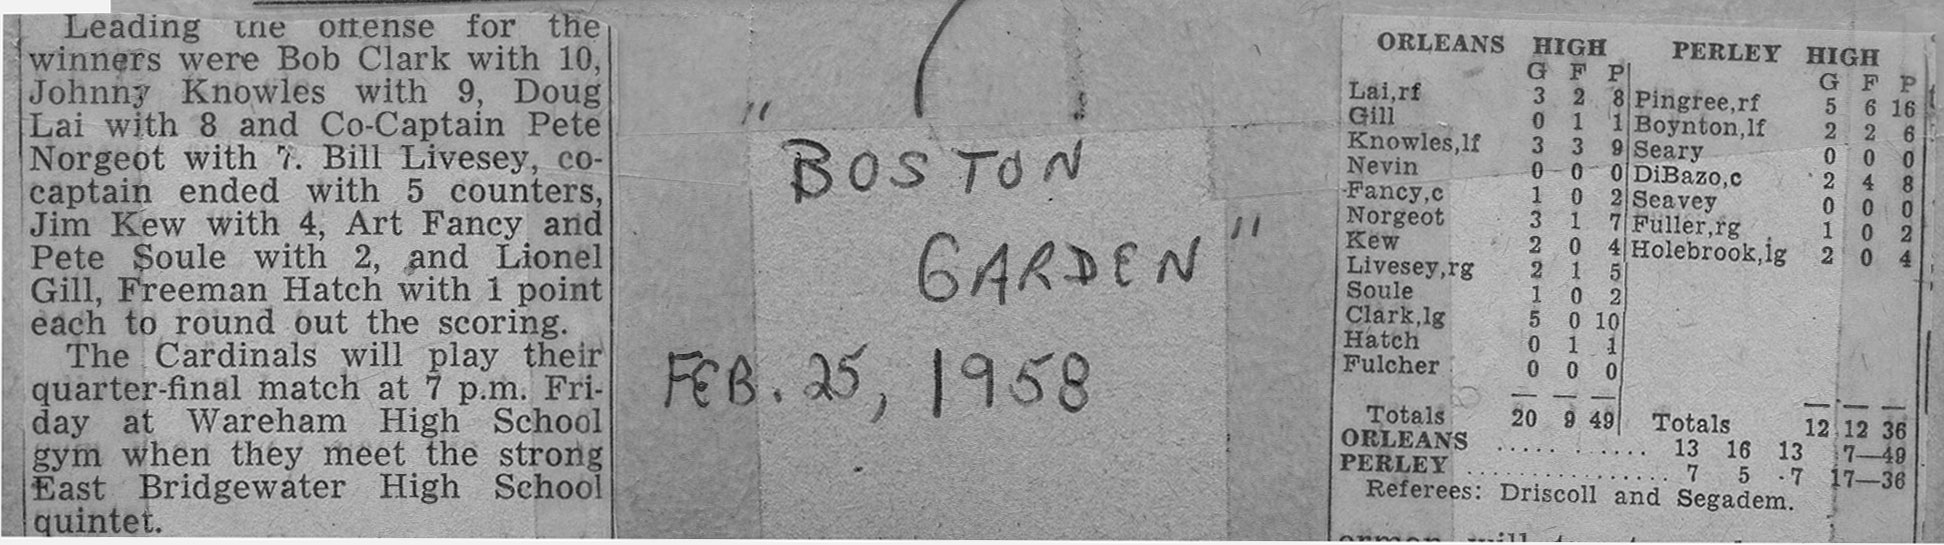 Leading the offense for the
winners were Bob Clark with 10,
Johnny Knowles with 9, Doug
Lai with 8 and Co-Captain Pete
Norgeot with 7. Bill Livesey, co-
captain ended with 5 counters,
Jim Kew with 4, Art Fancy and
Pete Soule with 2, and Lionel
Gill, Freeman Hatch with 1 point
each to round out the scoring.
The Cardinals will play their
quarter-final match at 7 p.m. Fri-
day at Wareham High School
gym when they meet the strong
East Bridgewater High School
quintet.
"BOSTON
GARDEN"
FEB. 25, 1958
ORLEANS HIGH PERLEY HIGH
G F P G F P
Lai,rf 3 2 8 Pingree,rf 5 6 16
Gill 0 1 1 Boynton,lf 2 2 6
Knowles,lf 3 3 9 Seary 0 0 0
Nevin 0 0 0 DiBazo,c 2 4 8
Fancy,c 1 0 2 Seavey 0 0 0
Norgeot 3 1 7 Fuller,rg 1 0 2
Kew 2 0 4 Holebrook,lg 2 0 4
Livesey,rg 2 1 5
Soule 1 0 2
Clark,lg 5 0 10
Hatch 0 1 1
Fulcher 0 0 0
Totals 20 9 49 Totals 12 12 36
ORLEANS . . . . . . . . . . . 13 16 13 7—49
PERLEY . . . . . . . . . . . . . . . . 7 5 7 17—36
Referees: Driscoll and Segadem.